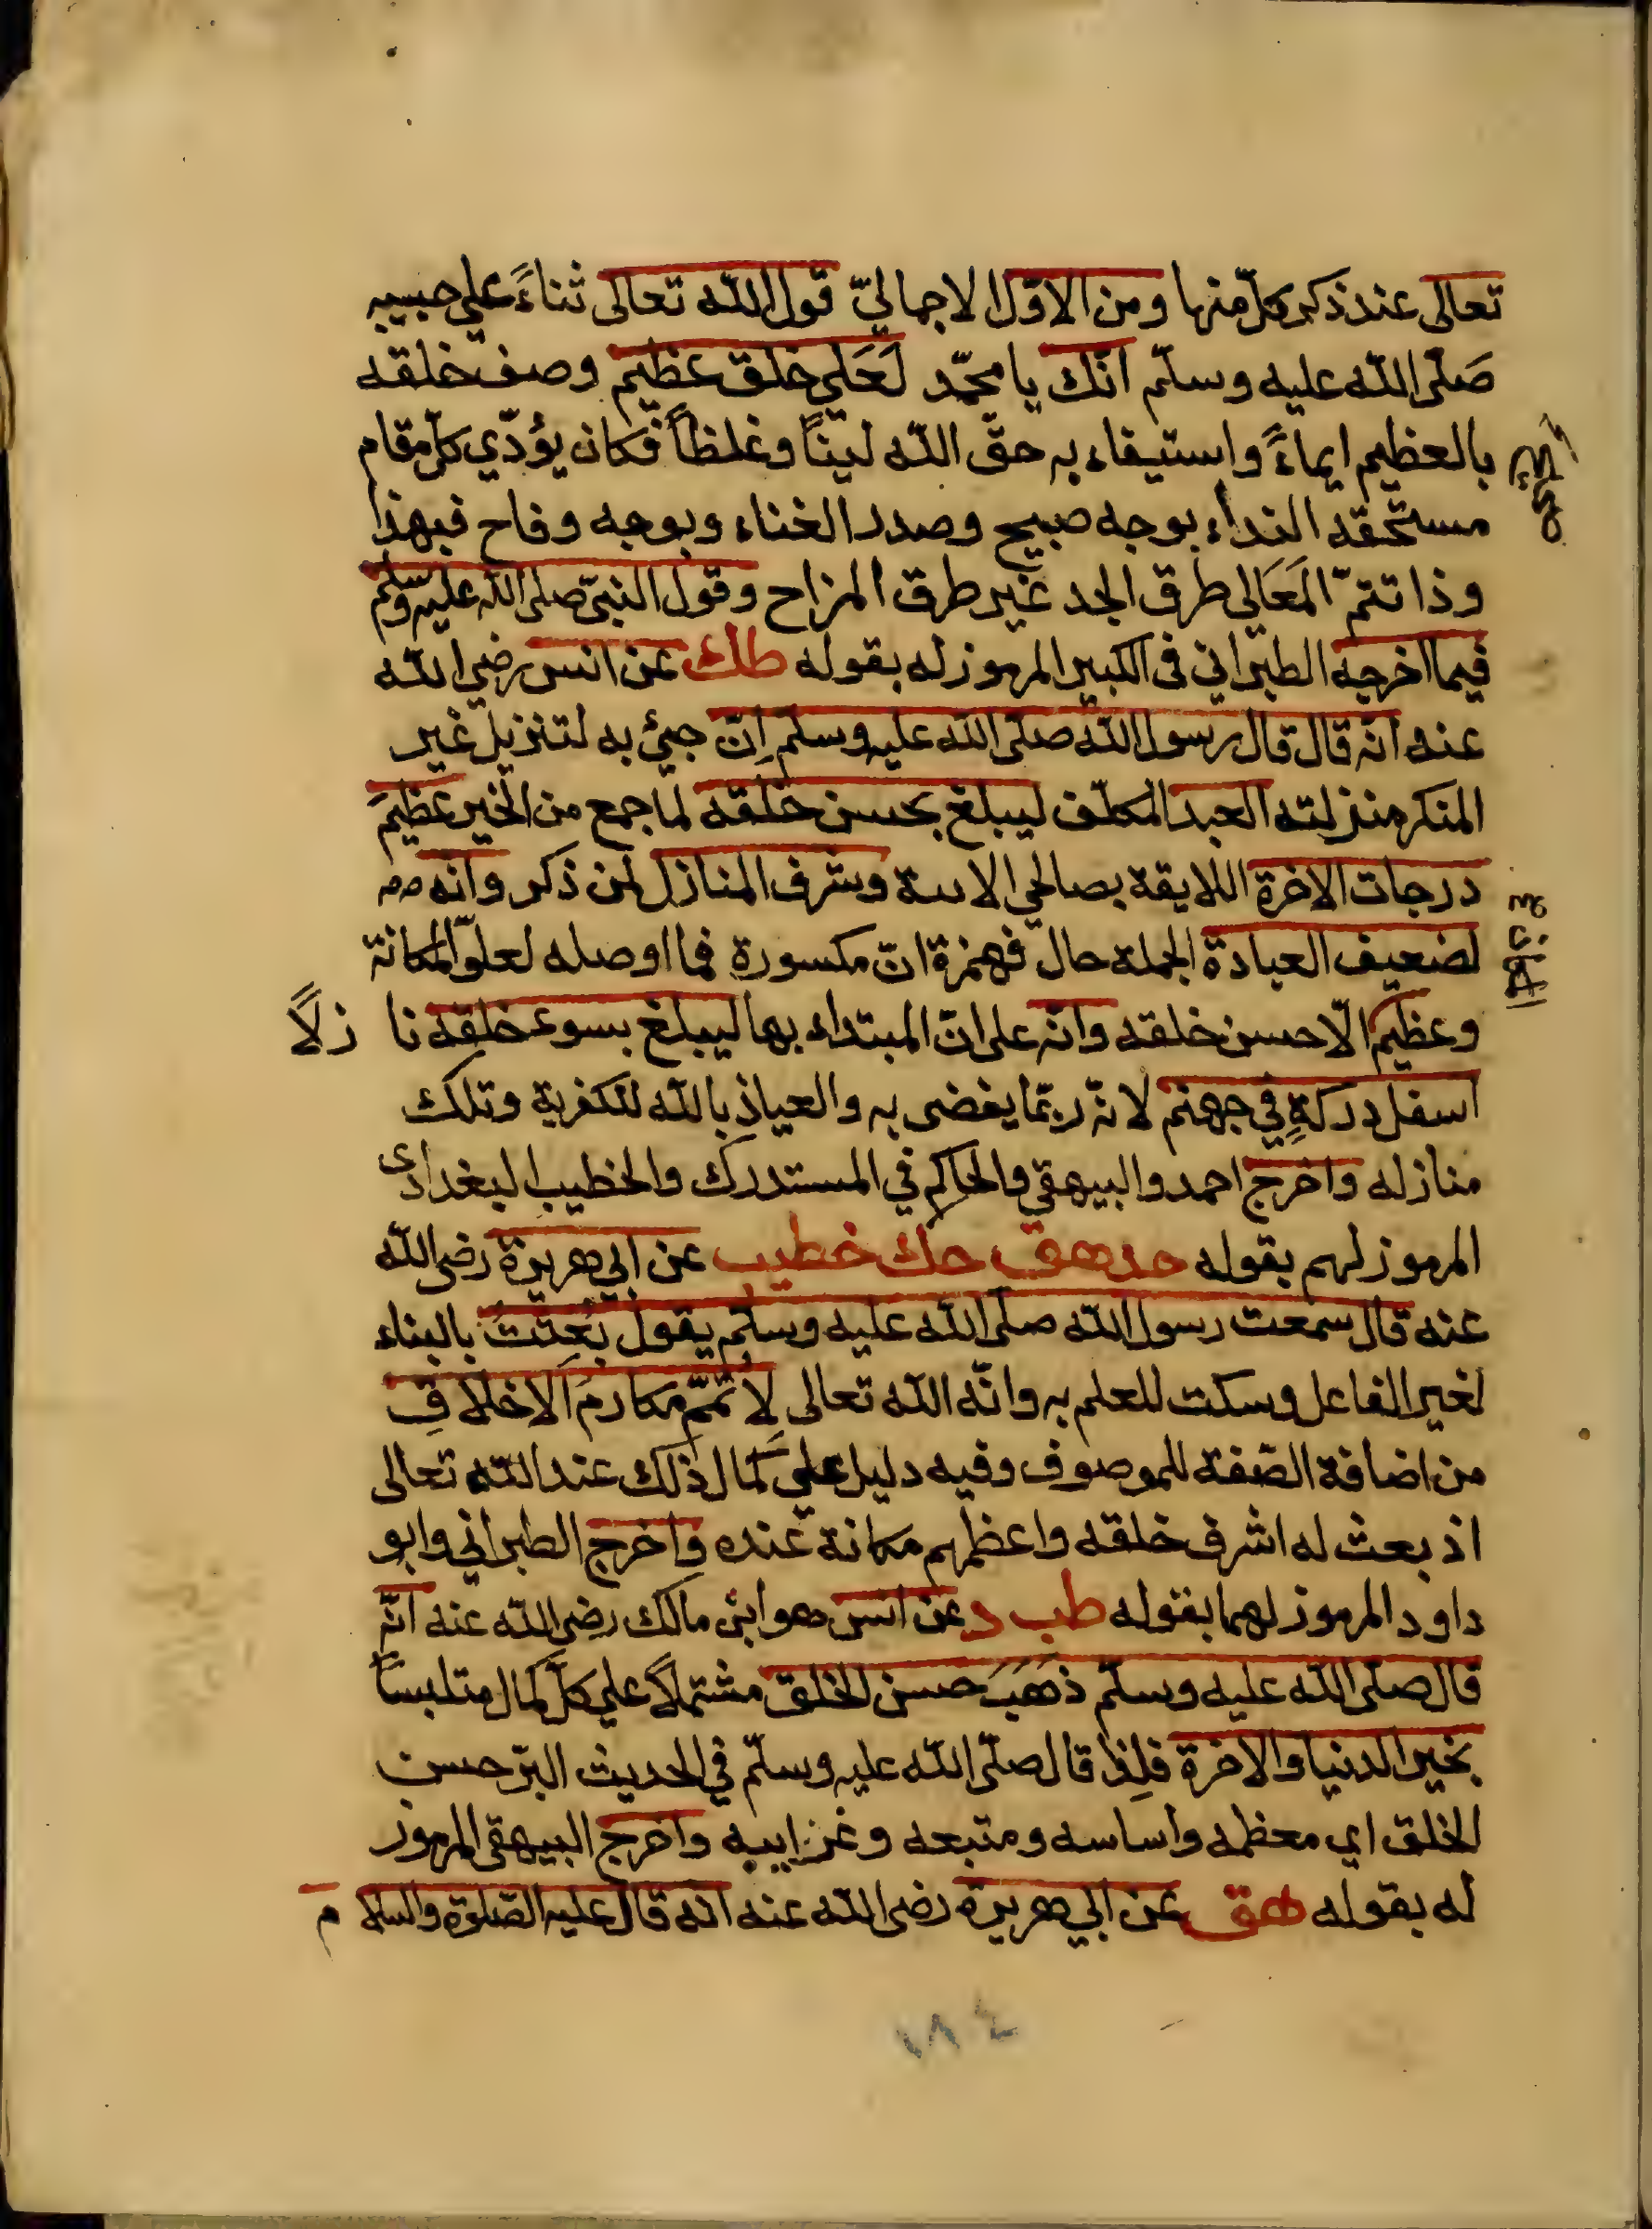 تعالى عند ذكر كلّ منها ومن الاوّل الاجماليّ قول الله تعالى ثناءً على حبيبه
صَلّى الله عليه وسلّم انّك يا محمّد لَعَلى خلق عظيم وصف خلقه
بالعظيم ايماءً واستيفاء به حقّ الله لينًا وغلظاً فكان يؤدّي كلّ مقام
مستحقه النداء بوجه صبيح وصدر الغناء وبوجه وقاح فبهذا
وذا تتمّ المَعَالى طرق الجد غير طرق المزاح وقول النبيّ صلى الله عليه وسلم
فيما اخرجه الطبراني فى الكبير المرموز له بقوله طك عن انس رضي الله
عنه انّه قال قال رسول الله صلّى الله عليه وسلّم اِنّ جيئ به لتنزيل غير
المنكر منزلته العبد المكلّف ليبلغ بحسن خلقه لما جمع من الخير عظيمَ
درجات الاخرة اللايقة بصالحي الامة وشرف المنازل لمن ذكر وانه
لضعيف العبادة الجملة حال فهمزة انّ مكسورة فما اوصله لعلوّ المكانة
وعظيم الّا حسن خلقه وانّه على انّ المبتداء بها ليبلغ بسوء خلقه نا زلاً
اسفل دركةٍ في جهنم لانّه ربّما يفضى به والعياذ بالله للكفرية وتلك
منازله واخرج احمد والبيهقي والحاكم في المستدرك والخطيب البغدادى
المرموز لهم بقوله حد هق حك خطيب عن ابي هريرة رضى الله
عنه قال سمعت رسول الله صلّى الله عليه وسلّم يقول بُعِثتُ بالبناء
لغير الفاعل وسكت للعلم به وانّه الله تعالى لِاُتمّمَ مكارمَ الاخلاقِ
من اضافة الصّفة للموصوف وفيه دليل على كمال ذلك عند الله تعالى
اذ بعث له اشرف خلقه واعظمهم مكانة عنده واخرج الطبراني وابو
داود المرموز لهما بقوله طب د عن انس هو ابن مالك رضى الله عنه انّه
قال صلّى الله عليه وسلّم ذَهَبَ حسن الخلق مشتملاً على كلّ كمال متلبسًا
بخير الدنيا والاخرة فلِذا قال صلّى الله عليه وسلّم في الحديث البرّ حسن
الخلق اي معظمه واساسه ومتبعه وعن ابيه واخرج البيهقي المرموز
له بقوله هق عن ابي هريرة رضى الله عنه انه قال عليه الصّلوة والسلام
١٨٤